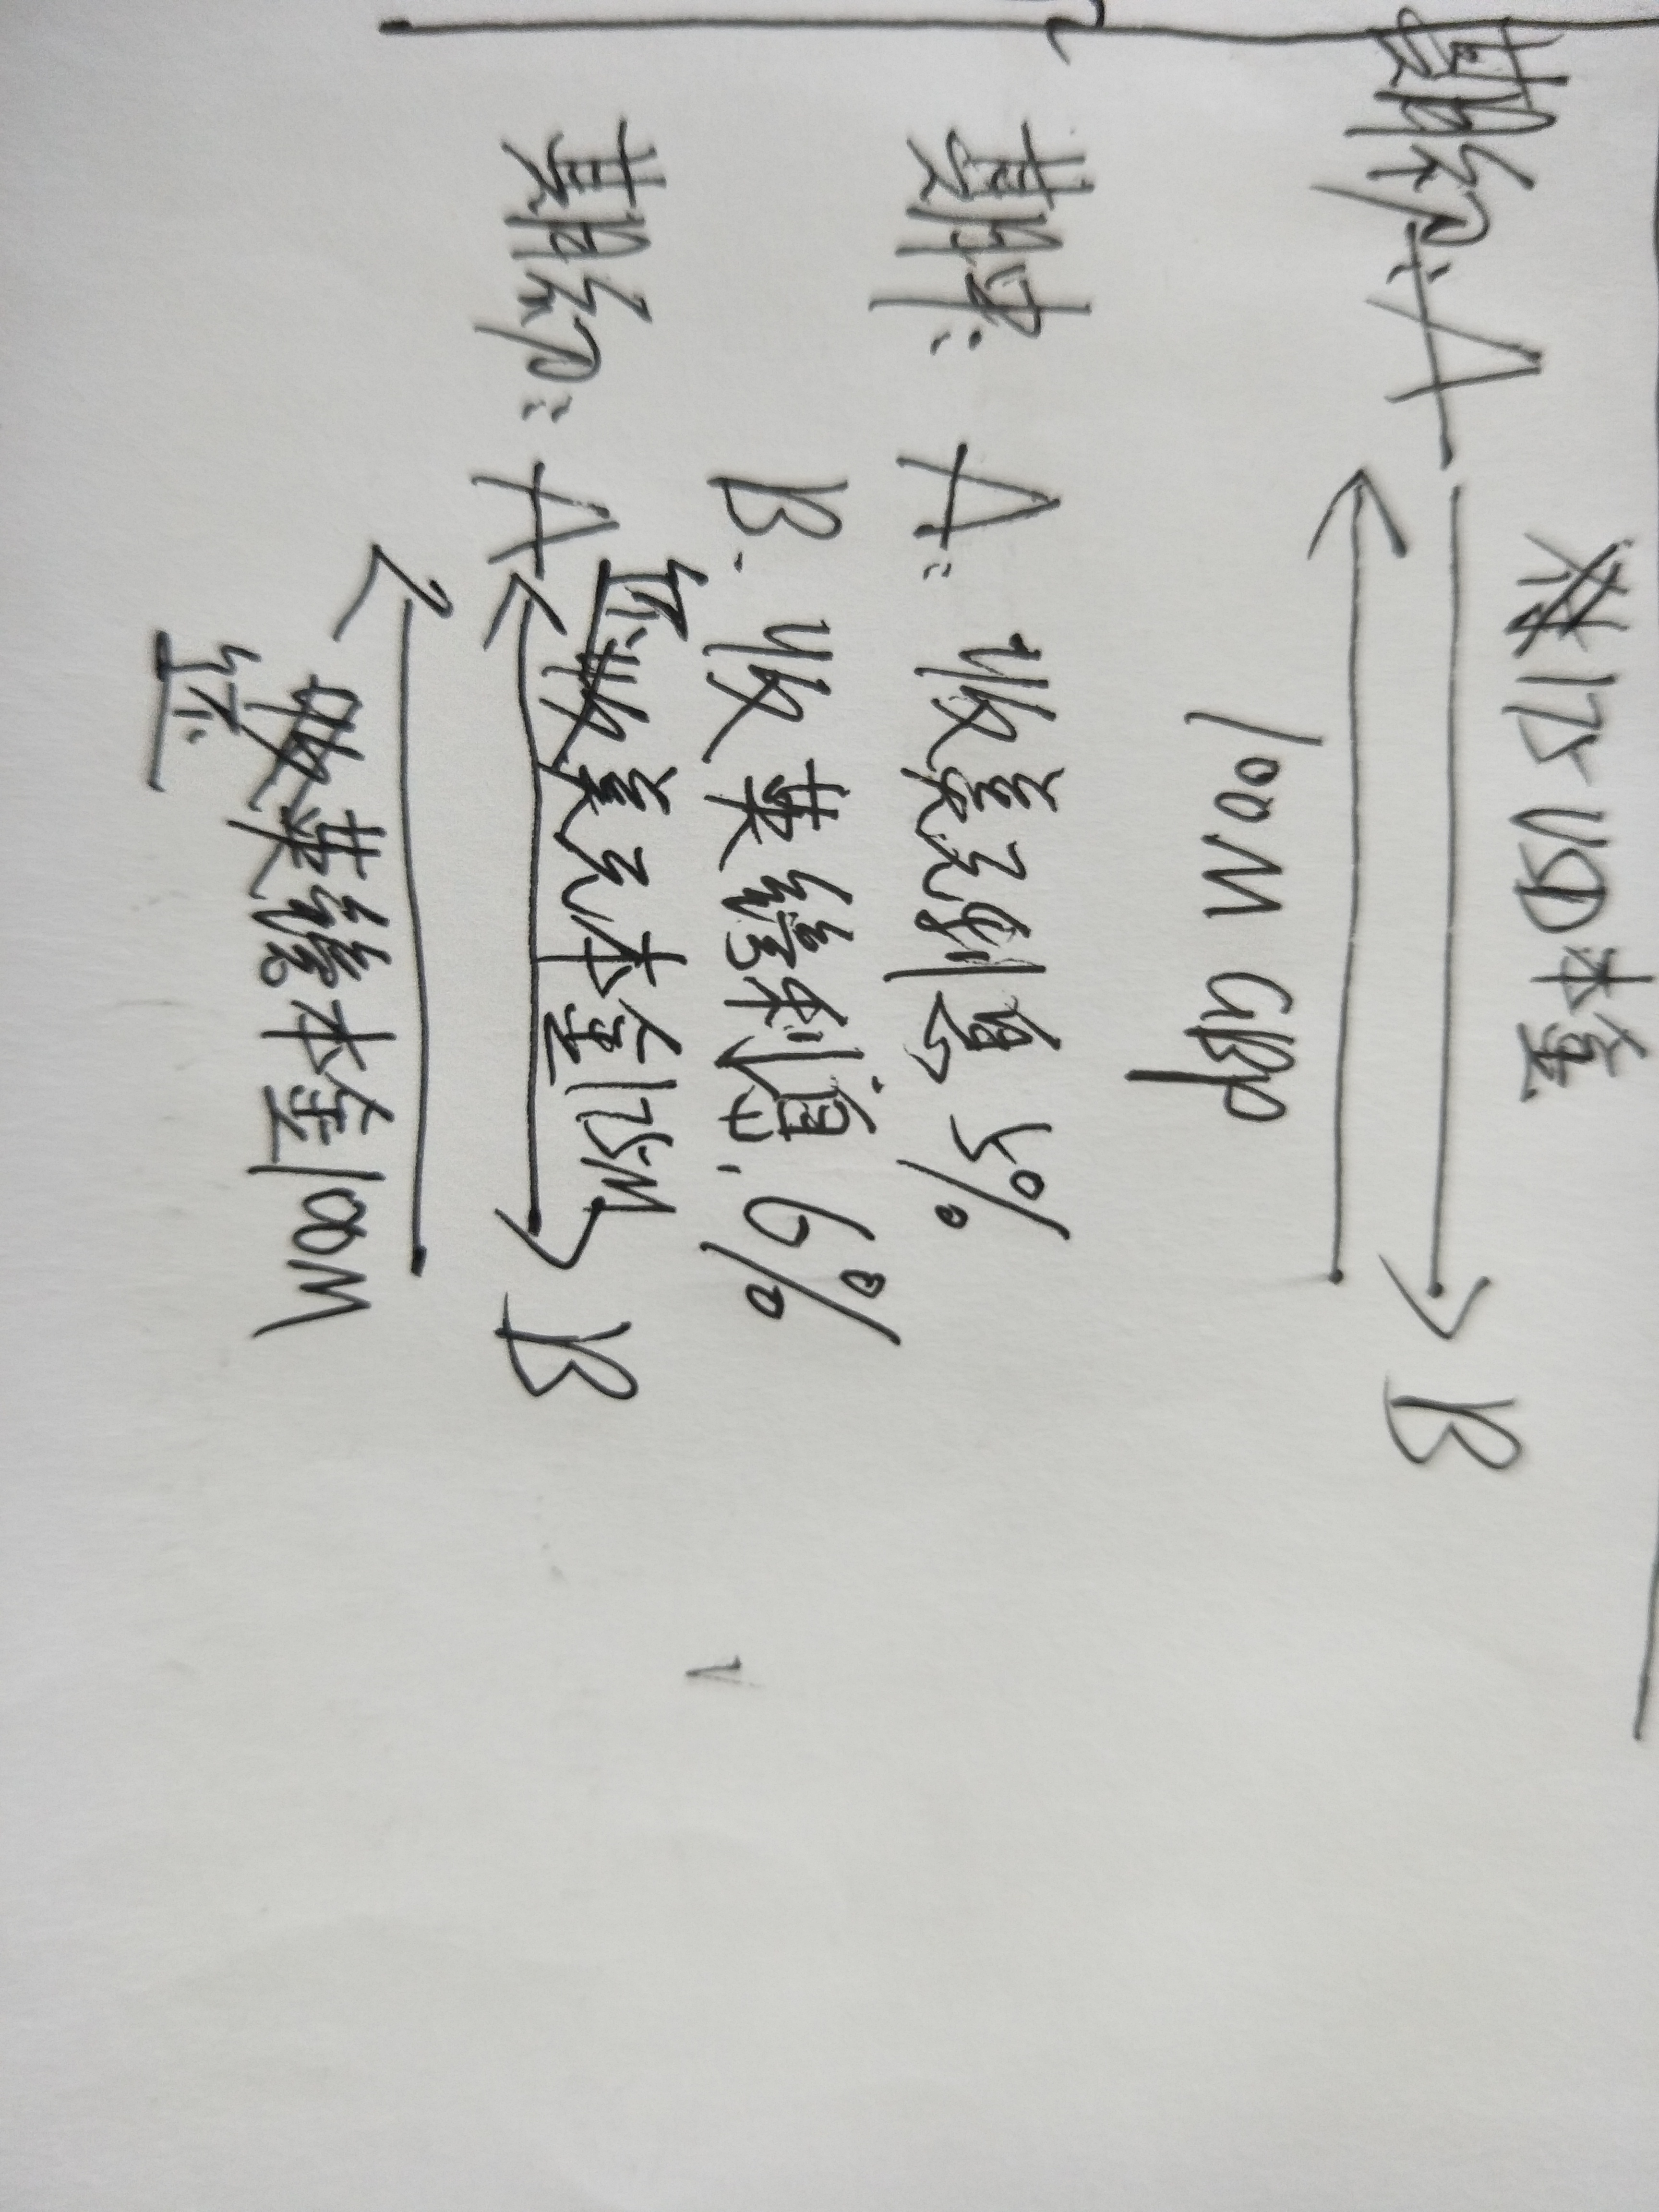 175 USD本金
期初:A B
100M GBP
期末: A: 收美元利息 5%
B. 收英镑利息. 6%
应 美元本金175M
期初: A B
英镑本金100M
应